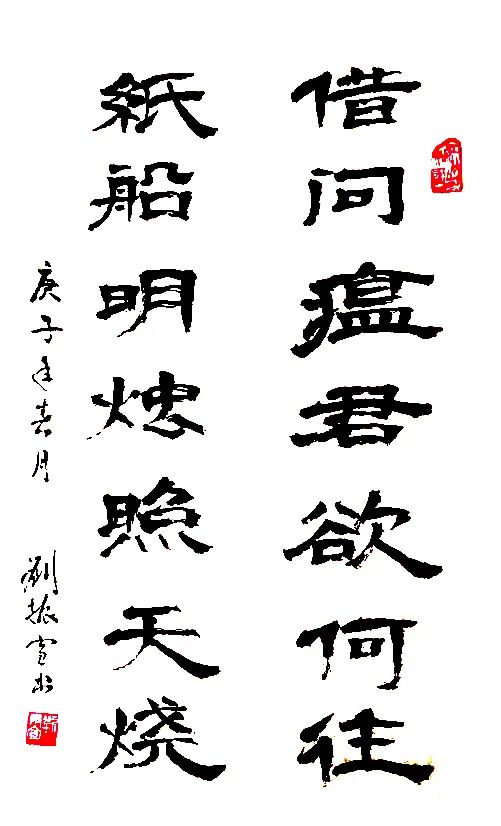 借问瘟君欲何往
紙船明烛照天烧
庚子年春月
劉振书